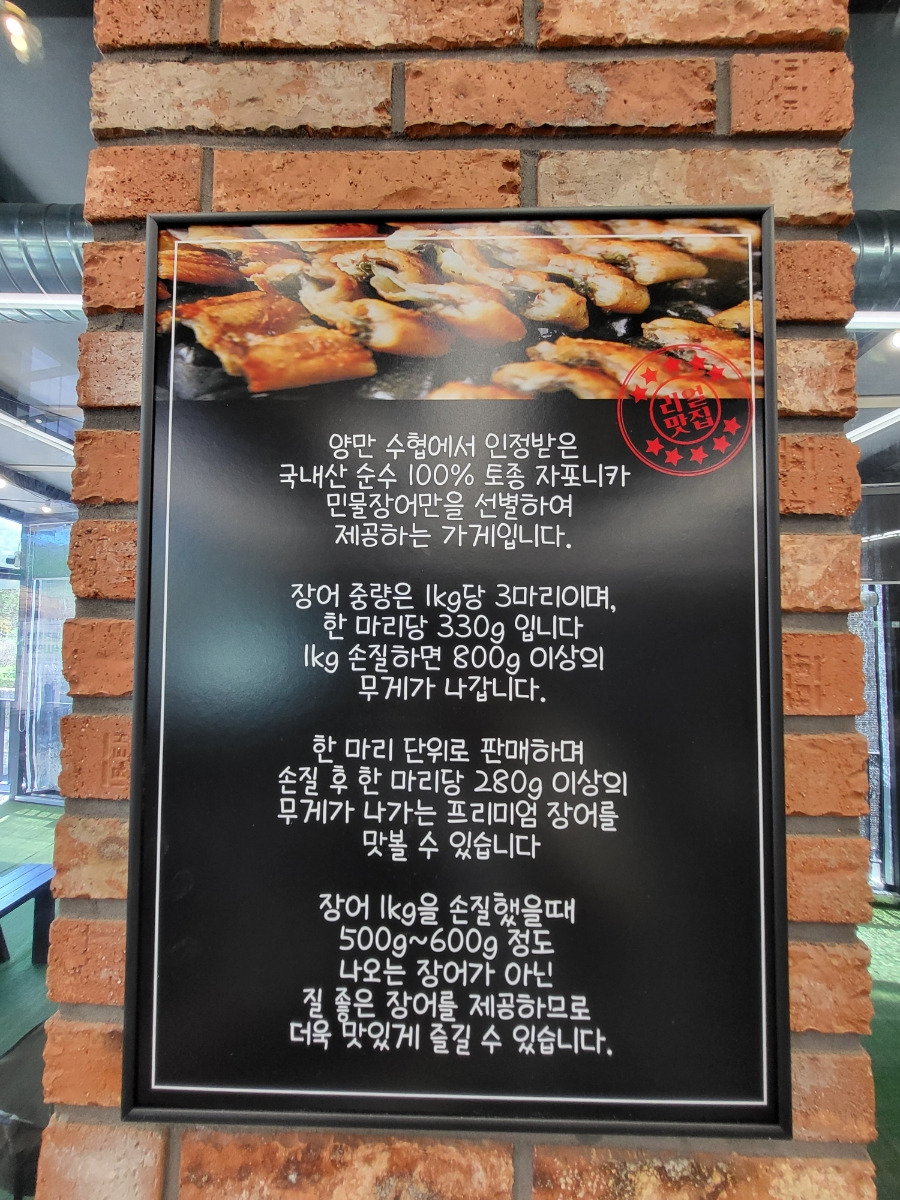 리얼
맛집
양만 수협에서 인정받은
국내산 순수 100% 토종 자포니카
민물장어만을 선별하여
제공하는 가게입니다.
장어 중량은 1kg당 3마리이며,
한 마리당 330g 입니다
1kg 손질하면 800g 이상의
무게가 나갑니다.
한 마리 단위로 판매하며
손질 후 한 마리당 280g 이상의
무게가 나가는 프리미엄 장어를
맛볼 수 있습니다
장어 1kg을 손질했을때
500g~600g 정도
나오는 장어가 아닌
질 좋은 장어를 제공하므로
더욱 맛있게 즐길 수 있습니다.